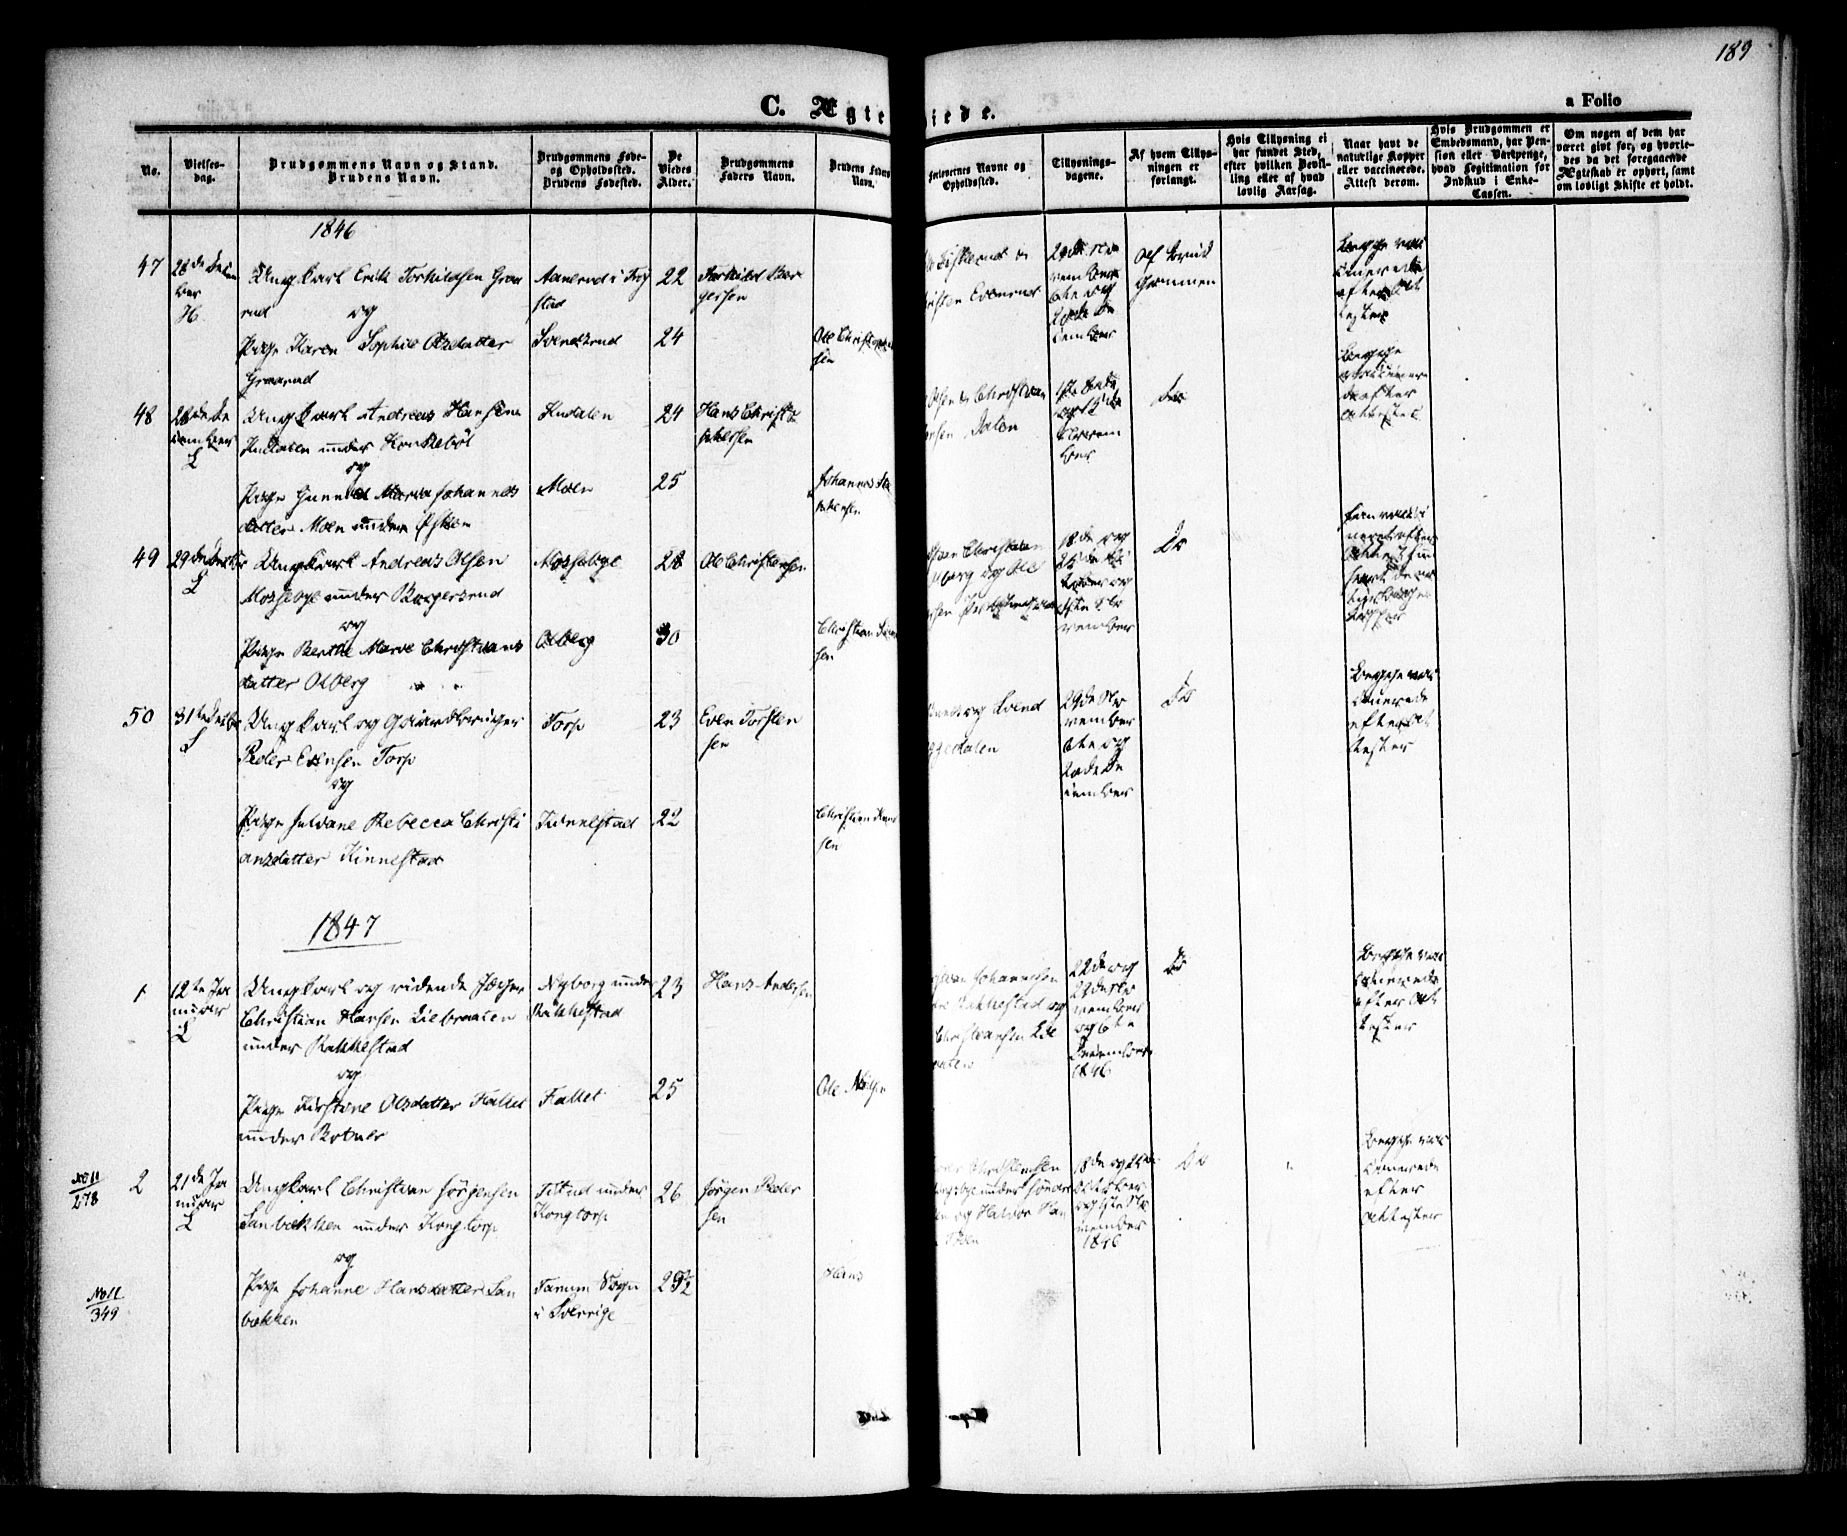 189
C. Ægte
iede.
a Folio
No.
Vielses-
dag.
Brudgommens Navn og Stand.
Brudens Navn.
Brudgommens Føde-
og Opholdssted.
Brudens Fødested.
De
Viedes
Alder.
Brudgommens
Faders Navn.
Brudens Faders
Navn.
Forlovernes Navne og
Opholdssted.
Tillysnings-
dagene.
Af hvem Tillys-
ningen er
forlangt.
Hvis Tillysning ei
har fundet Sted,
efter hvilken Bevil-
ling eller af hvad
lovlig Aarsag.
Naar havt de
naturlige Kopper
eller vaccinerede.
Attest derom.
Hvis Brudgommen er
Embedsmand, har Pen-
sion eller Vartpenge,
hvad Legitimation for
Indskud i Enke-
Cassen.
Om nogen af dem har
været givt før, og hvorle-
des da det foregaaende
Ægteskab er ophørt, samt
om lovligt Skifte er holdt.
1846
47
28de Decem
ber
H.
Ungkarl Erik Torkildsen Graa
rud
og
Pige Karen Sophie Olsdatter
Graarud
Aanerud i Trø
stad
Svendsrud
22
24
Torkild Bør
gersen
Ole Christophe
sen
20de No
vember
6te og
20de De
cember
Af Brud
gommen
Begge vac
cinerede
efter At
tester
48
28de De
cember
L
Ungkarl Andreas Hansen
Kudalen under Konkebøl
og
Pige Gunnild Maria Johannes
datter Moen under Eskøn
Kudalen
Moen
24
25
Hans Christo
phersen
Johannes
Olsen & Christian
Dalen
vem
ber
Do
Begge
vaccinere
de efter
attester
49
29de Decbr
L
Ungkarl Andreas Olsen
Mosseløge under Børgersrud
og
Pige Berthe Marie Christians
datter Olberg
Mosseløge
Olberg
28
30
Ole Christensen
Christian
sen
Christian
lberg og Ole
18de og
25de Oc
tober og
vember
Do
50
31te Decbr
L
Ungkarl og Gaardbruger
Peder Evensen Torp
og
Pige Juliane Rebecca Christi
ansdatter Kinnestad
Torp
Kinnestad
23
22
Even Torsten
sen
Christian
sen
og Svend
dalen
29de No
vember
6te og
20de De
cember
Do
Begge vac
cinerede
efter At
tester
1847
1
12te Ja
nuar
L
Ungkarl og ridende Jæger
Christian Hansen Liebraaten
under Rakkestad
og
Pige Kirstine Olsdatter Fallet
under Botner
Nyborg under
Rakkestad
Fallet
23
25
Hans Andersen
Ole Nilsen
Johannesen
Rakkestad og
Christiansen Lie
aaten
22de og
29de No
vember
og 6te
December
1846
Do
Begge vac
cinerede
efter At
tester
No 11
278
2
21de Ja
nuar
L
Ungkarl Christian Jørgensen
Sanbækken under Kongtorp
og
Pige Johanne Hansdatter San
bækken
Titud under
Kongtorp
Tanum Sogn
i Sverrige
26
29½
Jørgen Peder
sen
Hans
Christensen
under Søndre
og Halvor Han
18de og 25de
October
og 1ste No
vember
1846
Do
Begge vac
cinerede
efter
attester
No 11
349